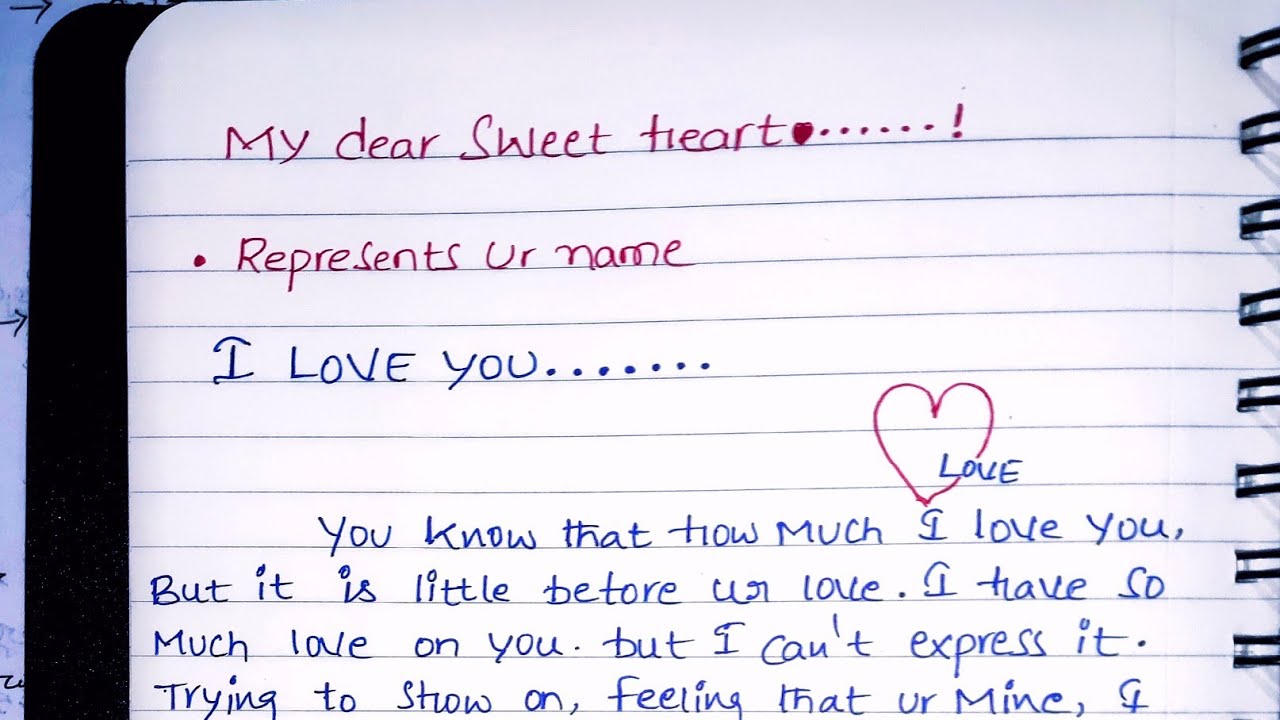 My dear Sweet heart♥......!
• Represents ur name
I LOVE YOU.......
LOVE
You know that how much I love you,
But it is little before ur love. I have so
much love on you. but I can't express it.
Trying to show on, feeling that ur mine, I